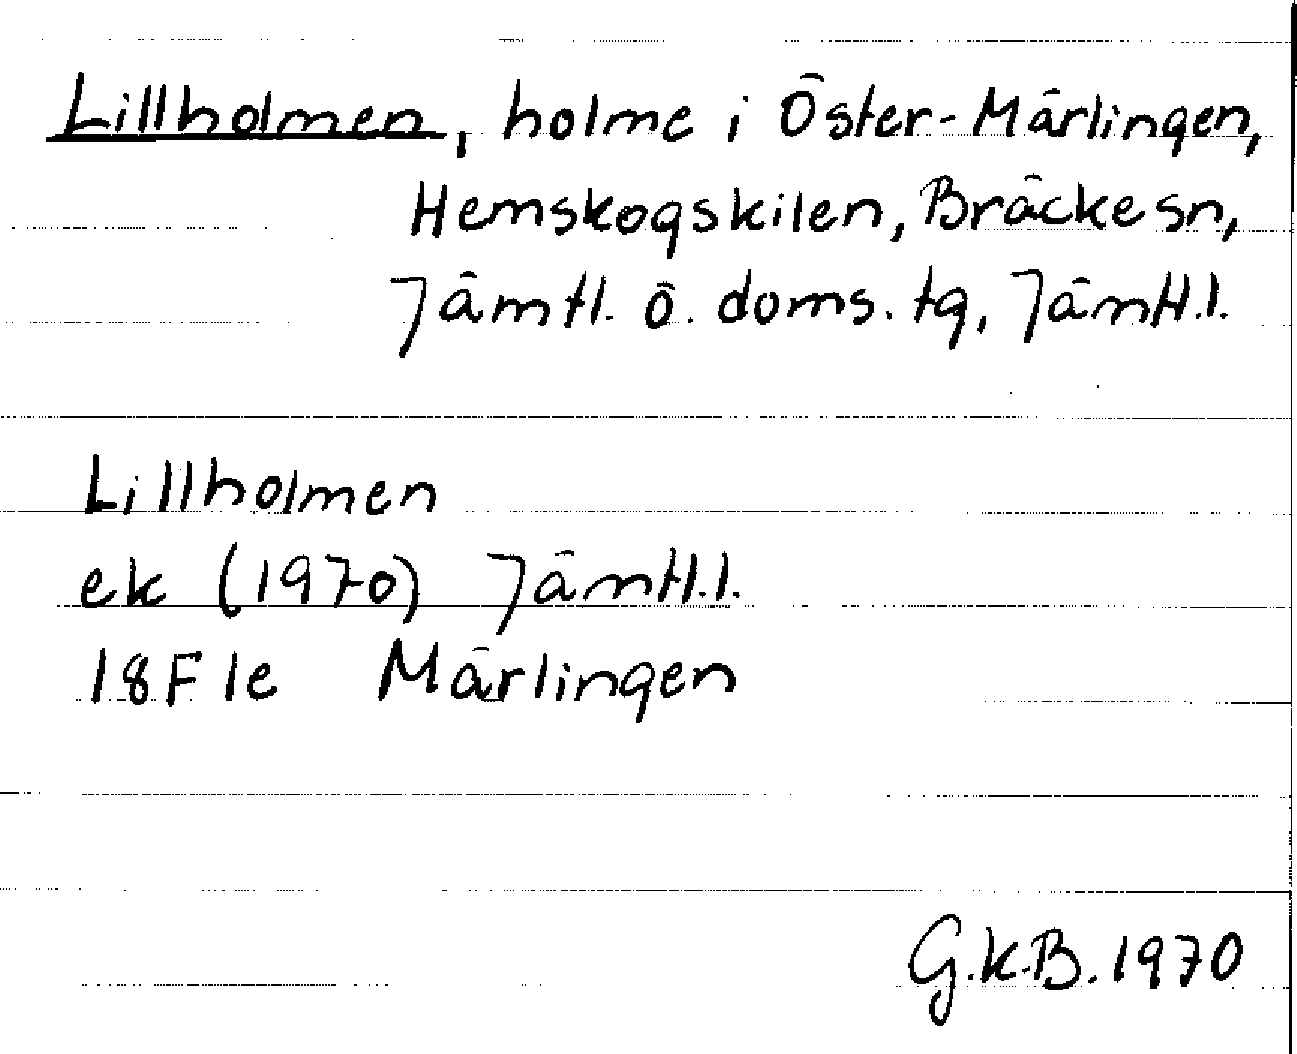 Lillholmen, holme i Öster-Märlingen,
Hemskogskilen, Bräcke sn,
Jämtl. ö. doms. tg, Jämtl.l.
Lillholmen
ek (1970) Jämtl.l.
18F 1e Märlingen
G.K.B. 1970